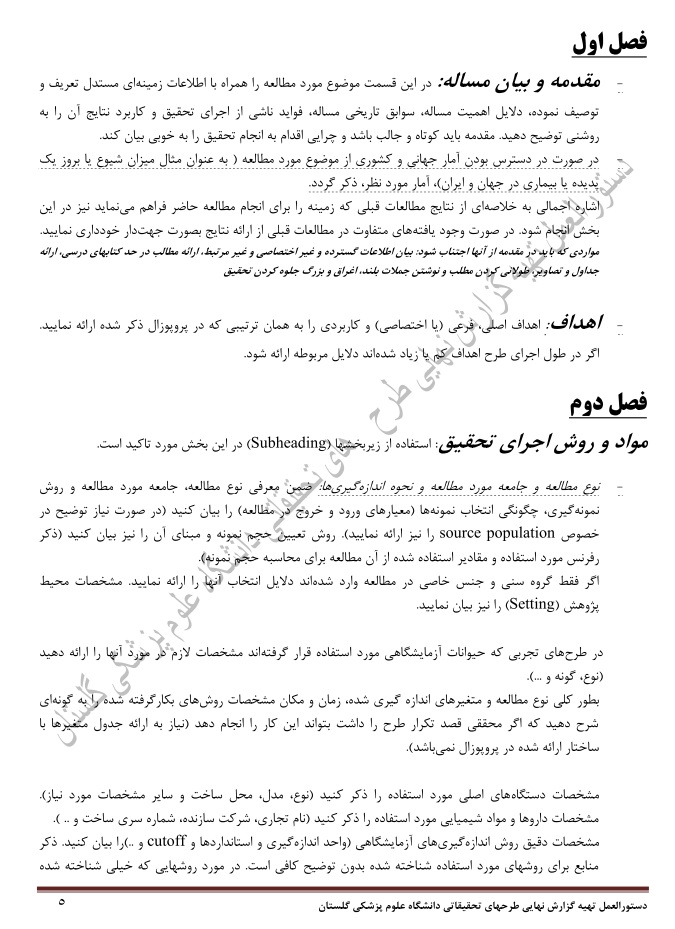 فصل اول
- مقدمه و بیان مساله: در این قسمت موضوع مورد مطالعه را همراه با اطلاعات زمینه‌ای مستدل تعریف و
توصیف نموده، دلایل اهمیت مساله، سوابق تاریخی مساله، فواید ناشی از اجرای تحقیق و کاربرد نتایج آن را به
روشنی توضیح دهید. مقدمه باید کوتاه و جالب باشد و چرایی اقدام به انجام تحقیق را به خوبی بیان کند.
- در صورت در دسترس بودن آمار جهانی و کشوری از موضوع مورد مطالعه ( به عنوان مثال میزان شیوع یا بروز یک
پدیده یا بیماری در جهان و ایران)، آمار مورد نظر، ذکر گردد.
اشاره اجمالی به خلاصه‌ای از نتایج مطالعات قبلی که زمینه را برای انجام مطالعه حاضر فراهم می‌نماید نیز در این
بخش انجام شود. در صورت وجود یافته‌های متفاوت در مطالعات قبلی از ارائه نتایج بصورت جهت‌دار خودداری نمایید.
مواردی که باید در مقدمه از آنها اجتناب شود: بیان اطلاعات گسترده و غیر اختصاصی و غیر مرتبط، ارائه مطالب در حد کتابهای درسی، ارائه
جداول و تصاویر، طولانی کردن مطلب و نوشتن جملات بلند، اغراق و بزرگ جلوه کردن تحقیق
- اهداف: اهداف اصلی، فرعی (یا اختصاصی) و کاربردی را به همان ترتیبی که در پروپوزال ذکر شده ارائه نمایید.
اگر در طول اجرای طرح اهداف کم یا زیاد شده‌اند دلایل مربوطه ارائه شود.
فصل دوم
مواد و روش اجرای تحقیق: استفاده از زیربخشها (Subheading) در این بخش مورد تاکید است.
- نوع مطالعه و جامعه مورد مطالعه و نحوه اندازه‌گیری‌ها: ضمن معرفی نوع مطالعه، جامعه مورد مطالعه و روش
نمونه‌گیری، چگونگی انتخاب نمونه‌ها (معیارهای ورود و خروج در مطالعه) را بیان کنید (در صورت نیاز توضیح در
خصوص source population را نیز ارائه نمایید). روش تعیین حجم نمونه و مبنای آن را نیز بیان کنید (ذکر
رفرنس مورد استفاده و مقادیر استفاده شده از آن مطالعه برای محاسبه حجم نمونه).
اگر فقط گروه سنی و جنس خاصی در مطالعه وارد شده‌اند دلایل انتخاب آنها را ارائه نمایید. مشخصات محیط
پژوهش (Setting) را نیز بیان نمایید.
در طرح‌های تجربی که حیوانات آزمایشگاهی مورد استفاده قرار گرفته‌اند مشخصات لازم در مورد آنها را ارائه دهید
(نوع، گونه و ...).
بطور کلی نوع مطالعه و متغیرهای اندازه گیری شده، زمان و مکان مشخصات روش‌های بکارگرفته شده را به گونه‌ای
شرح دهید که اگر محققی قصد تکرار طرح را داشت بتواند این کار را انجام دهد (نیاز به ارائه جدول متغیرها با
ساختار ارائه شده در پروپوزال نمی‌باشد).
مشخصات دستگاه‌های اصلی مورد استفاده را ذکر کنید (نوع، مدل، محل ساخت و سایر مشخصات مورد نیاز).
مشخصات داروها و مواد شیمیایی مورد استفاده را ذکر کنید (نام تجاری، شرکت سازنده، شماره سری ساخت و .. ).
مشخصات دقیق روش اندازه‌گیری‌های آزمایشگاهی (واحد اندازه‌گیری و استانداردها و cutoff و ..)را بیان کنید. ذکر
منابع برای روشهای مورد استفاده شناخته شده بدون توضیح کافی است. در مورد روشهایی که خیلی شناخته شده
دستورالعمل تهیه گزارش نهایی طرحهای تحقیقاتی دانشگاه علوم پزشکی گلستان
۵
دستورالعمل تهیه گزارش نهایی طرح های تحقیقاتی دانشگاه علوم پزشکی گلستان